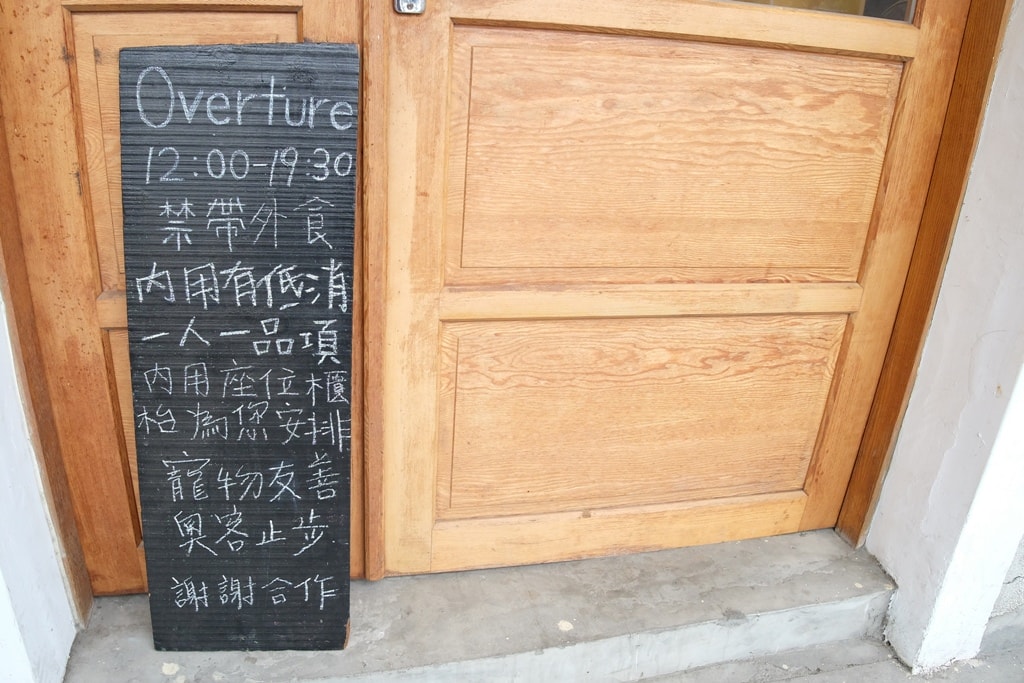 Overture
12:00-19:30
禁帶外食
內用有低消
一人一品項
內用座位櫃
枱為您安排
寵物友善
奧客止步
謝謝合作